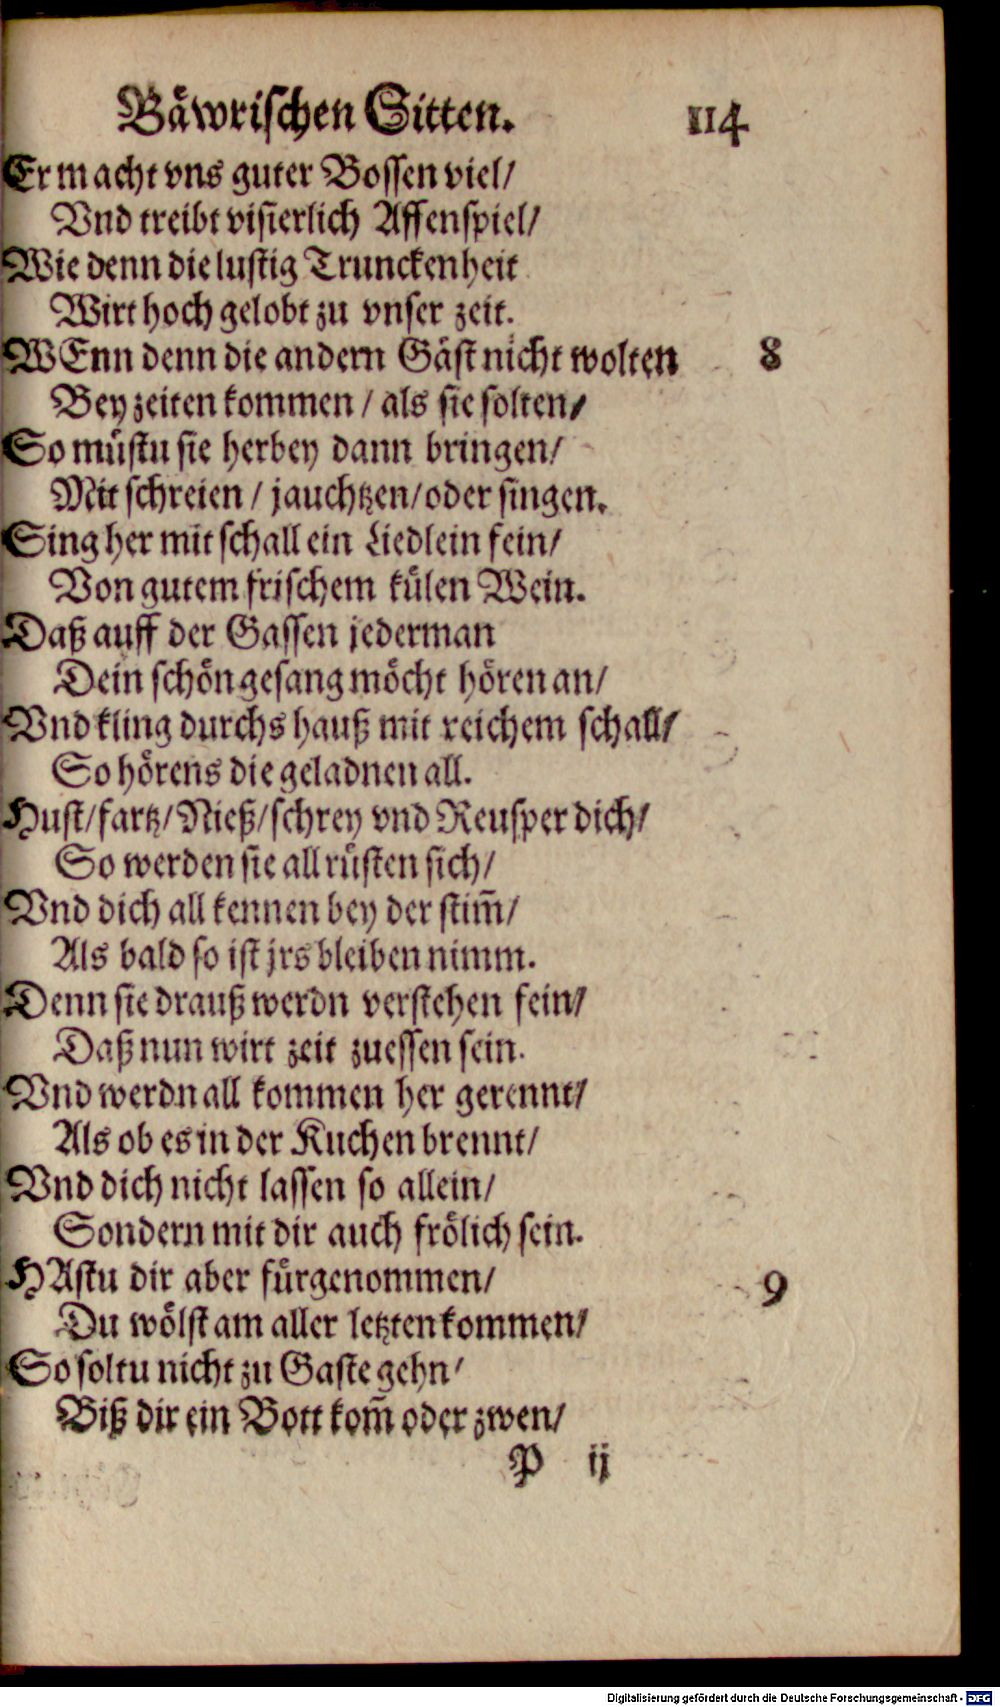 Bäwrischen Sitten. 114
Er macht vns guter Bossen viel/
Vnd treibt visierlich Affenspiel/
Wie denn die lustig Trunckenheit
Wirt hoch gelobt zu vnser zeit.
WEnn denn die andern Gäst nicht wolten 8
Bey zeiten kommen / als sie solten/
So müstu sie herbey dann bringen/
Mit schreien / jauchtzen/ oder singen.
Sing her mit schall ein Liedlein fein/
Von gutem frischem külen Wein.
Daß auff der Gassen jederman
Dein schön gesang möcht hören an/
Vnd kling durchs hauß mit reichem schall/
So hörens die geladnen all.
Hust/ fartz/ Nieß/ schrey vnd Reusper dich/
So werden sie all rüsten sich/
Vnd dich all kennen bey der stim̄/
Als bald so ist jrs bleiben nimm.
Denn sie drauß werdn verstehen fein/
Daß nun wirt zeit zuessen sein.
Vnd werdn all kommen her gerennt/
Als ob es in der Kuchen brennt/
Vnd dich nicht lassen so allein/
Sondern mit dir auch frölich sein.
HAstu dir aber fürgenommen/ 9
Du wölst am aller letzten kommen/
So soltu nicht zu Gaste gehn/
Biß dir ein Bott kom̄ oder zwen/
P ij
Digitalisierung gefördert durch die Deutsche Forschungsgemeinschaft - DFG